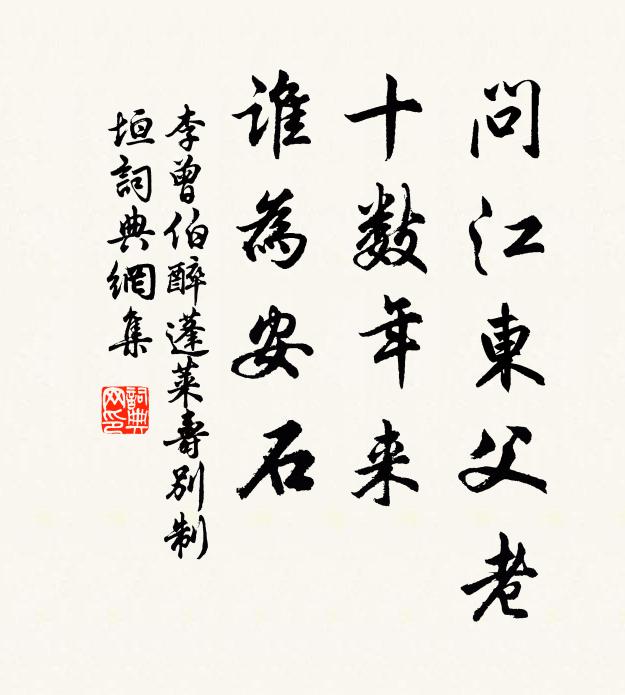 問江東父老
十数年来
誰為安石
李曾伯醉蓬萊壽別制
垣詞典網集
詞典网印